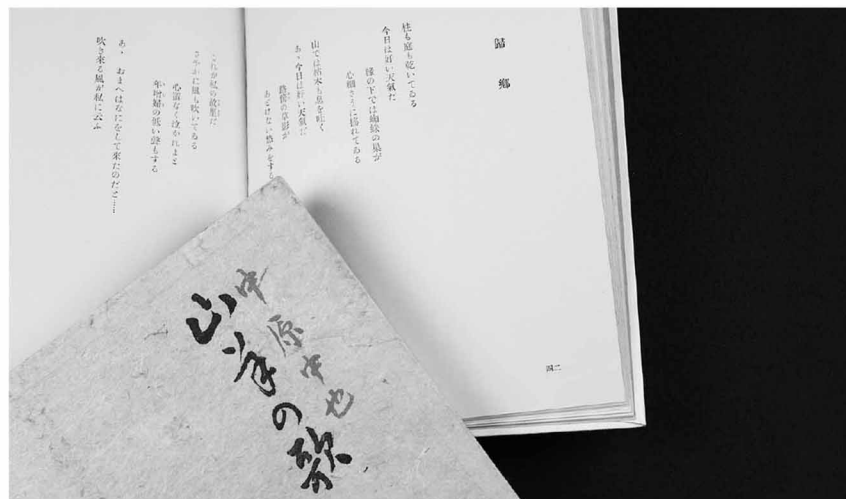 歸郷
柱も庭も乾いてゐる
今日は好い天氣だ
椽の下では蜘蛛の巣が
心細さうに揺れてゐる
山では枯木も息を吐く
あゝ今日は好い天氣だ
路傍の草影が
あどけない愁みをする
これが私の故里だ
さやかに風も吹いてゐる
心置なく泣かれよと
年増婦の低い聲もする
あゝ おまへはなにをして来たのだと……
吹き来る風が私に云ふ
四二
中原中也
山羊の歌